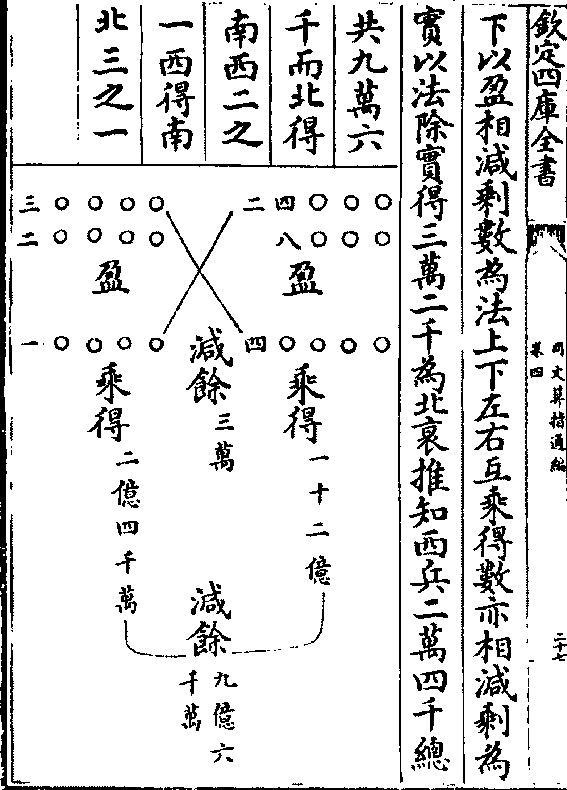 欽定四庫全書
同文算指通編
卷四
二十七
下以盈相減剩數為法上下左右互乘得數亦相減剩為
實以法除實得三萬二千為北衰推知西兵二萬四千總
共九萬六
千而北得
南西二之
一西得南
北三之一
二四〇〇〇
八〇〇〇
盈
四〇〇〇〇
乘得一十二億
三〇〇〇〇
二〇〇〇〇
盈
一〇〇〇〇
乘得二億四千萬
減餘三萬
減餘九億六
千萬